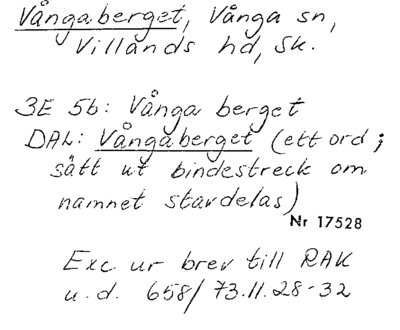 Vångaberget, Vånga sn,
Villands hd, Sk.
3E 5b: Vånga berget
DAL: Vångaberget (ett ord;
sätt ut bindestreck om
namnet stavdelas)
Nr 17528
Exc. ur brev till RAK
u.d. 658/73.11.28-32